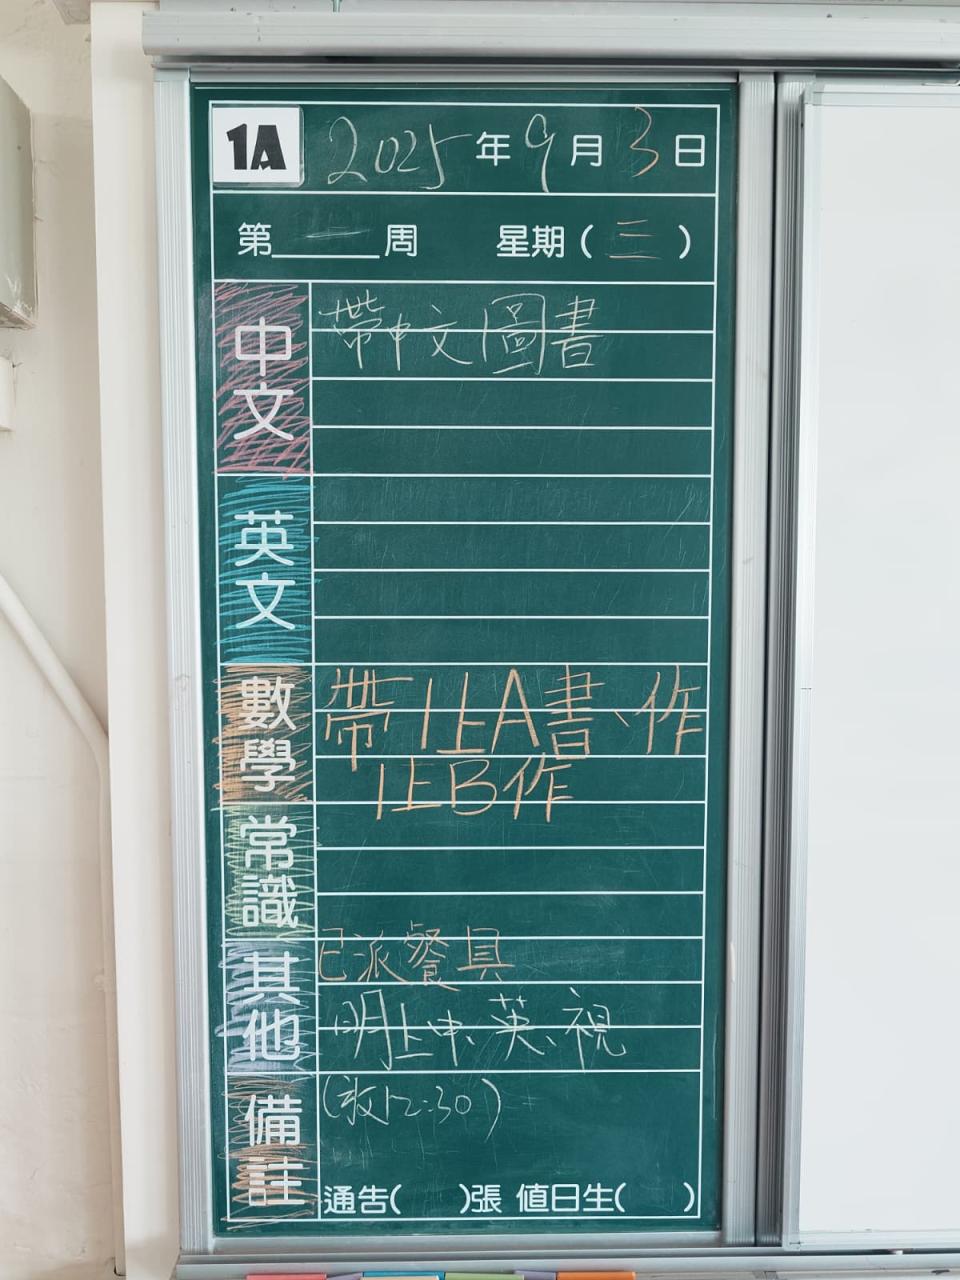 1A 2025年9月3日
第一周 星期(三)
中文 帶中文圖書
英文
數學 帶1上A書、作
1上B作
常識
其他 已派餐具
明上中、英、視
備註 (放12:30)
通告( )張 值日生( )